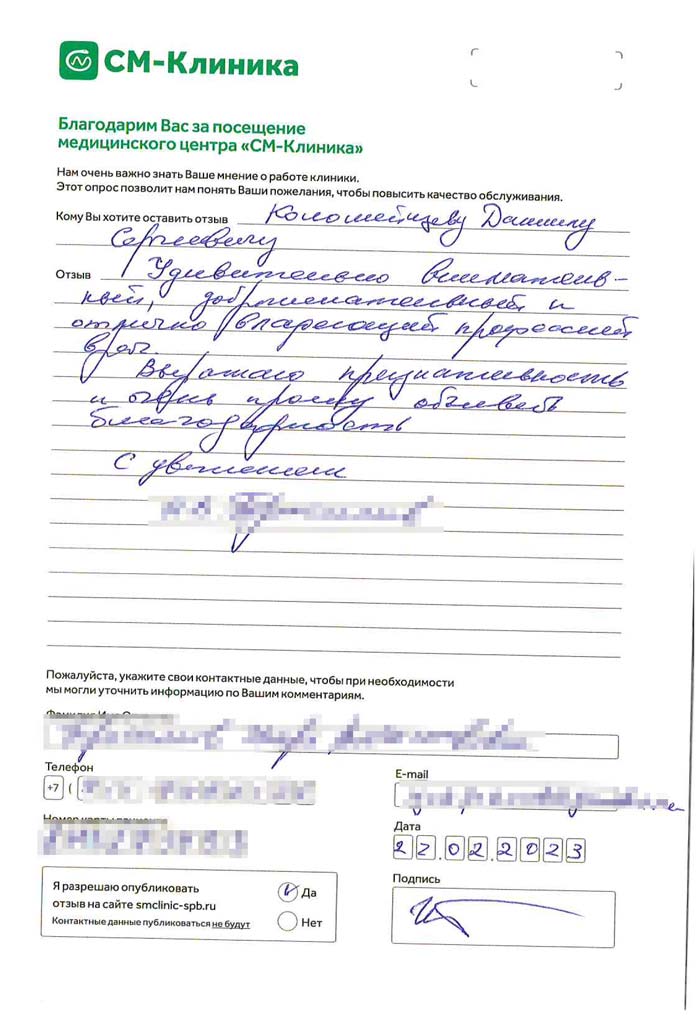 СМ-Клиника
Благодарим Вас за посещение
медицинского центра «СМ-Клиника»
Нам очень важно знать Ваше мнение о работе клиники.
Этот опрос позволит нам понять Ваши пожелания, чтобы повысить качество обслуживания.
Кому Вы хотите оставить отзыв Коломейцеву Даниилу
Сергеевичу
Отзыв Удивительно вниматель-
ный, доброжелательный и
отлично владеющий профессией
врач.
Выражаю признательность
и очень прошу объявить
благодарность
С уважением
Пожалуйста, укажите свои контактные данные, чтобы при необходимости
мы могли уточнить информацию по Вашим комментариям.
Телефон
+7 (
E-mail
Дата
22.02.2023
Подпись
Я разрешаю опубликовать
отзыв на сайте smclinic-spb.ru
Контактные данные публиковаться не будут
Да
Нет